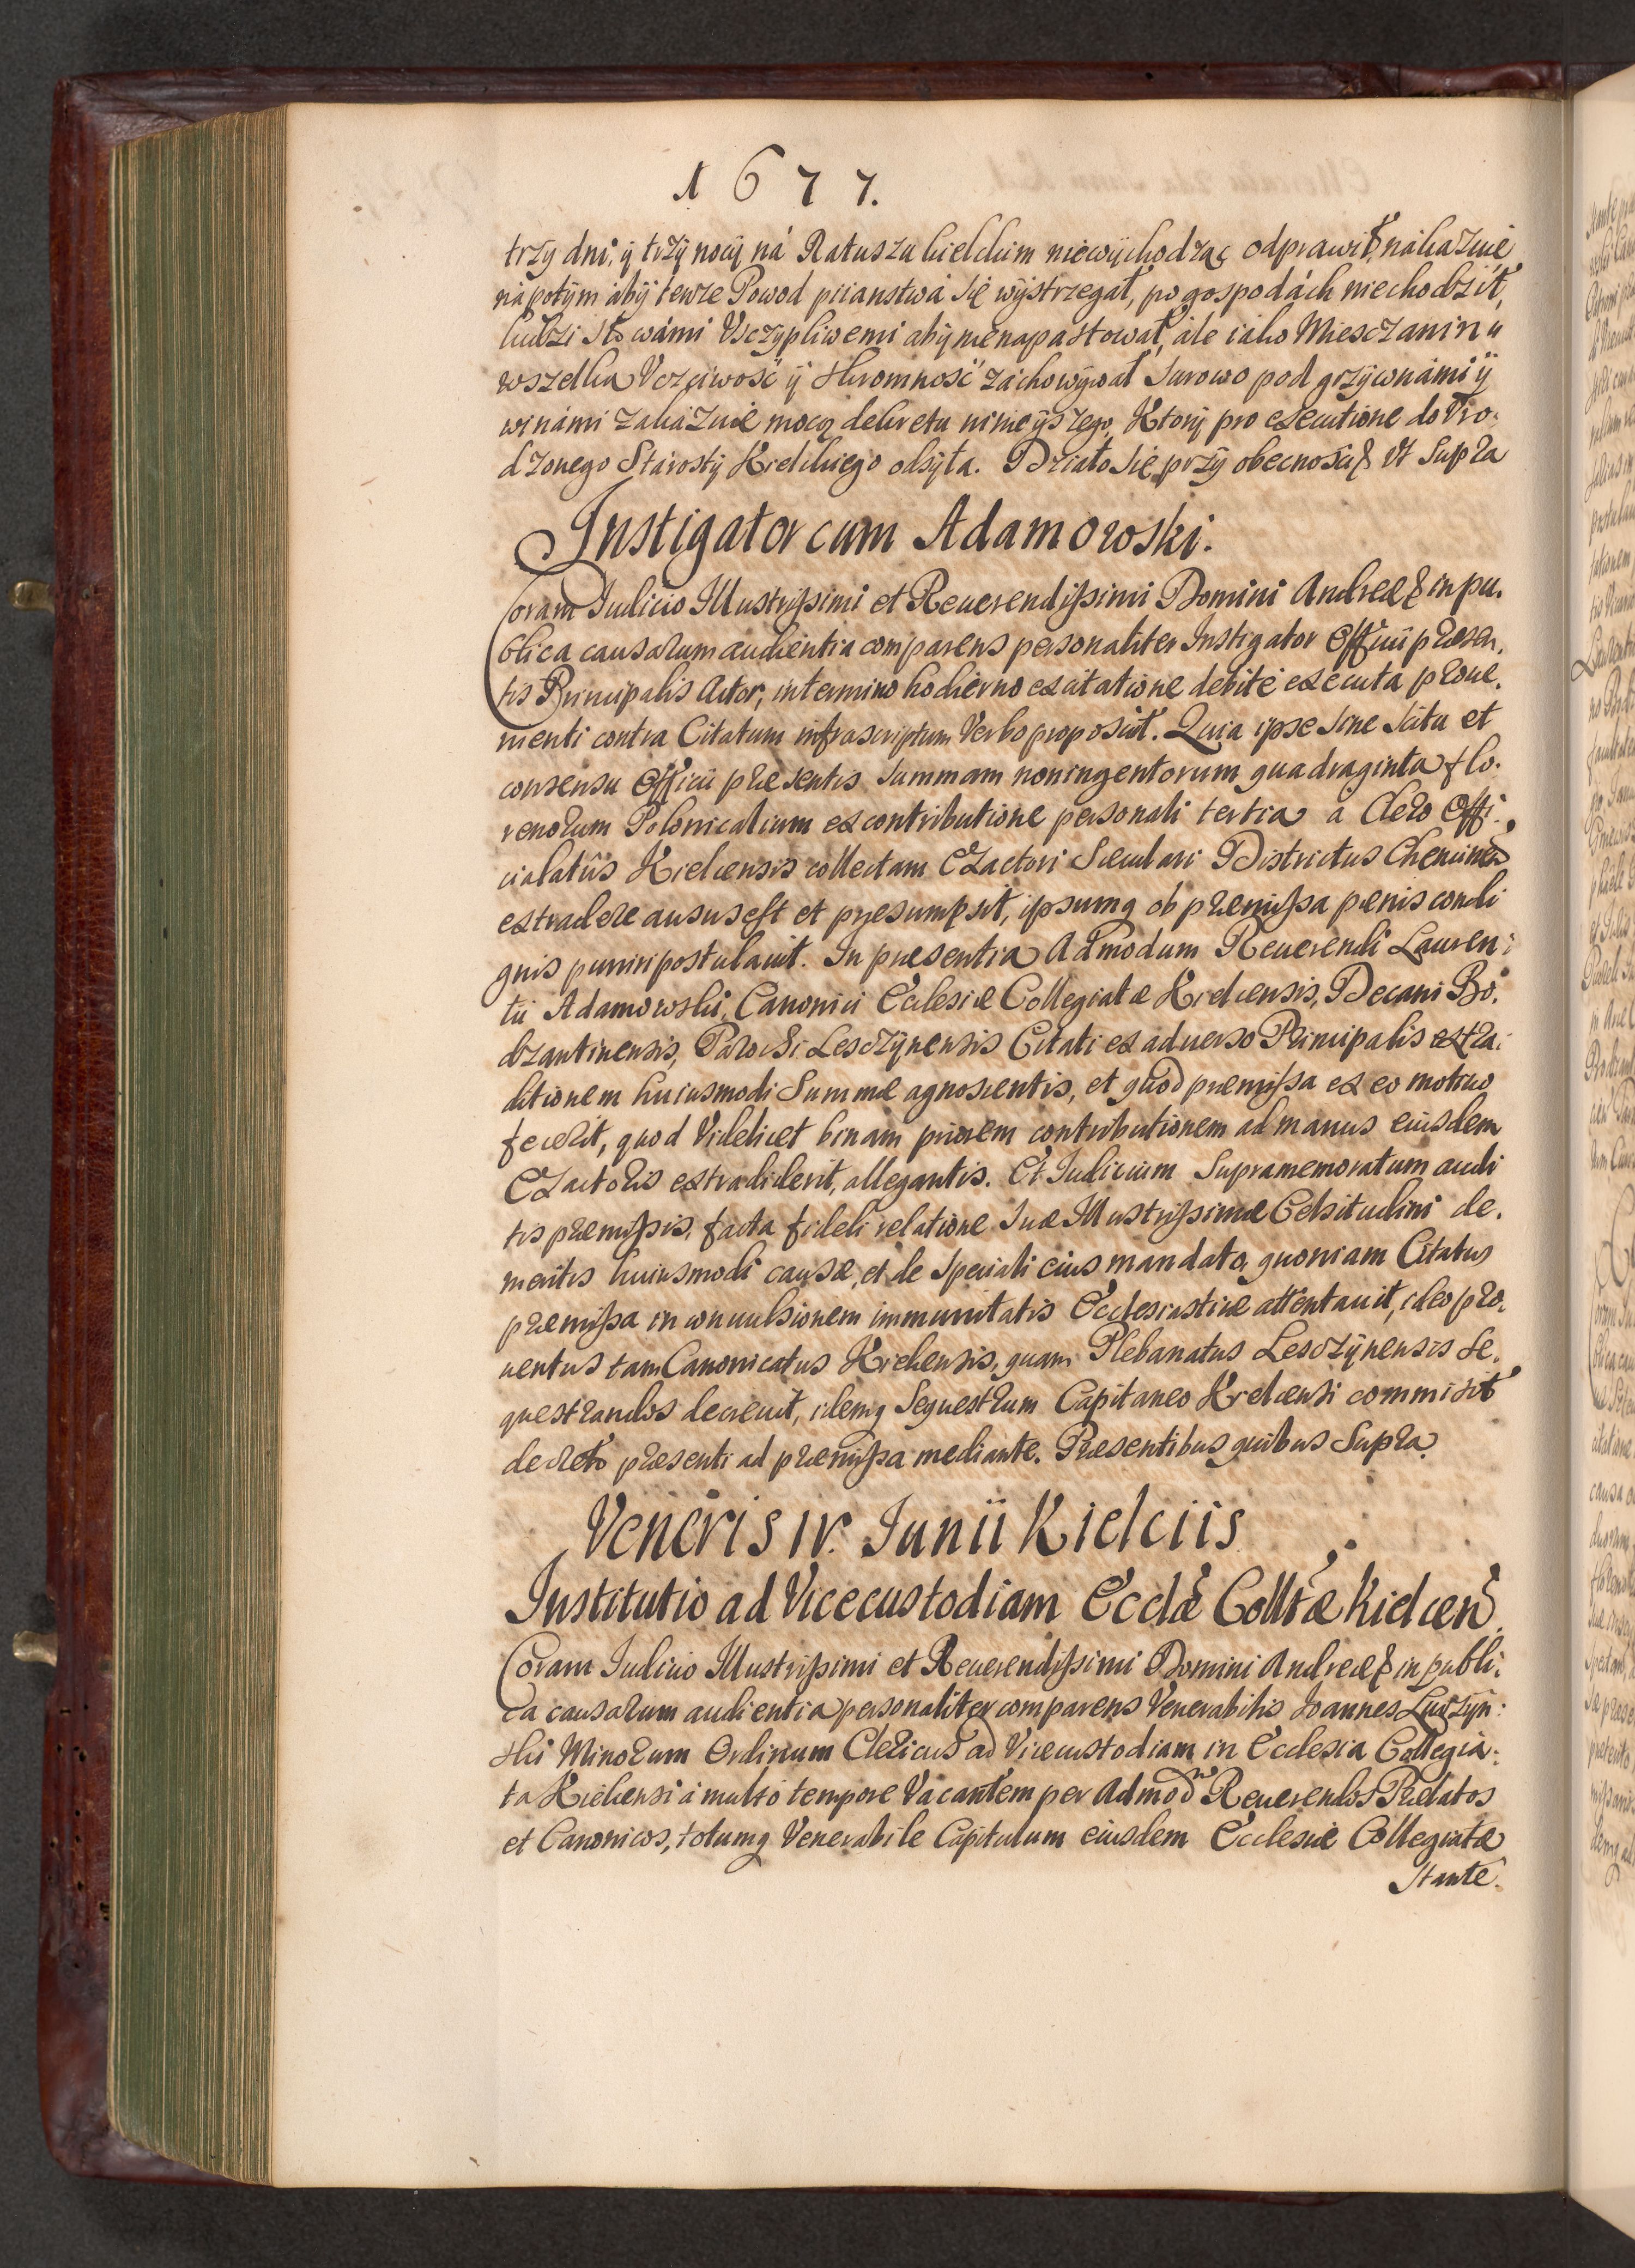 1677.
trzy dni, ÿ trzÿ nocÿ ná Ratuszu kieleckim niewÿchodząc odprawił, nakazuie
nápotÿm ábÿ tenże Powod piianstwá się wÿstrzegał, po gospodách niechodził,
ludzi słowámi Vszczypliwemi abÿ nienapastował, ále iáko Miesczanin
wszelką Vczciwość ÿ skromność záchowÿwał surowo pod grzÿwnámi ÿ
winámi zakázuie mocą dekretu ninieÿszego, Ktorÿ pro executione do Vro-
dzonego Stárostÿ Kieleckiego odsÿła. Działo się przÿ obecnoscią vt supra
Instigator cum Adamowski.
Coram Iudicio Illustrissimi et Reuerendissimi Domini Andreæ & in pu-
blica causarum audientia comparens personaliter Instigator Officii præsen-
tis Principalis Actor, in termino hodierno ex citatione debite executa proue-
nienti contra Citatum infrascriptum Verbo proposuit. Quia ipse sine scitu et
consensu Officii præsentis summam noningentorum quadraginta flo-
renorum Polonicalium ex contributione personali tertia a Clero Offi-
cialatûs Kielcensis collectam Exactori Sæculari Districtus Chencinen
extradere ausus est et præsumpsit, ipsumq ob præmissa pænis condi
gnis puniri postulauit. In præsentia Admodum Reuerendi Lauren-
tii Adamowski, Canonici Ecclesiæ Collegiatæ Kielcensis, Decani Bo-
dzantinensis, Parochi Leszczÿnensis Citati ex aduerso Principalis extra-
ditionem huiusmodi Summæ agnoscentis, et quod præmissa ex eo motiuo
fecerit, quod Videlicet binam priorem contributionem ad manus eiusdem
Exactoris extradiderit, allegantis. Et Iudicium Supramemoratum audi
tis præmissis, facta fideli relatione Suæ Illustrissimæ Celsitudini de
meritis huiusmodi causæ, et de speciali eius mandato, quoniam Citatus
præmissa in conuulsionem immunitatis Ecclesiasticæ attentauit, ideo pro-
uentus tam Canonicatus Kielcensis, quam Plebanatus Leszczÿnensis se-
questrandos decreuit, idemq Sequestrum Capitaneo Kielcensi commisit
decreto præsenti ad præmissa mediante. Præsentibus quibus Supra
Veneris IV. Iunii Kielciis
Institutio ad Vicecustodiam Ecclæ Colltæ Kielcen
Coram Iudicio Illustrissimi et Reuerendissimi Domini Andreæ & in publi-
ca causarum audientia personaliter comparens Venerabilis Ioannes
ski Minorum Ordinum Clericus ad Vicecustodiam in Ecclesia Collegia-
ta Kielcensi á multo tempore Vacantem per Admodm Reuerendos Prælatos
et Canonicos, totumq Venerabile Capitulum eiusdem Ecclesiæ Collegiatæ
Stante